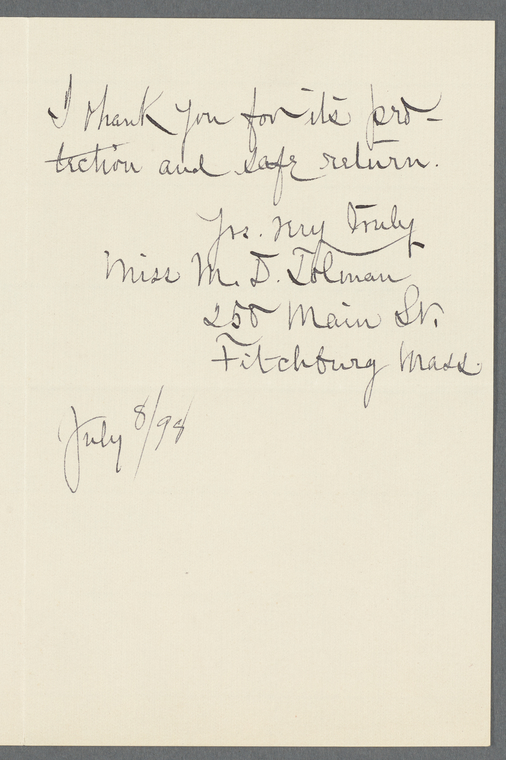 I thank you for its pro-
tection and safe return.
Yrs. very truly
Miss M. D. Tolman
250 Main St.
Fitchburg Mass
July 8/98